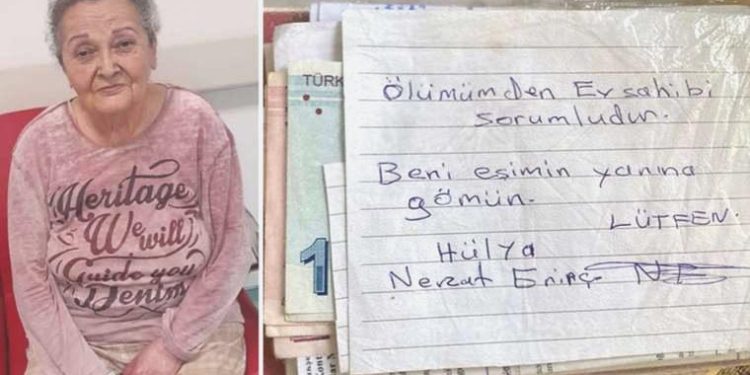 Heritage
We will
Guide you
Denim
TÜRK
1
Ölümümden Ev sahibi
sorumludur.
Beni eşimin yanına
gömün.
LÜTFEN.
Hülya
Nevzat